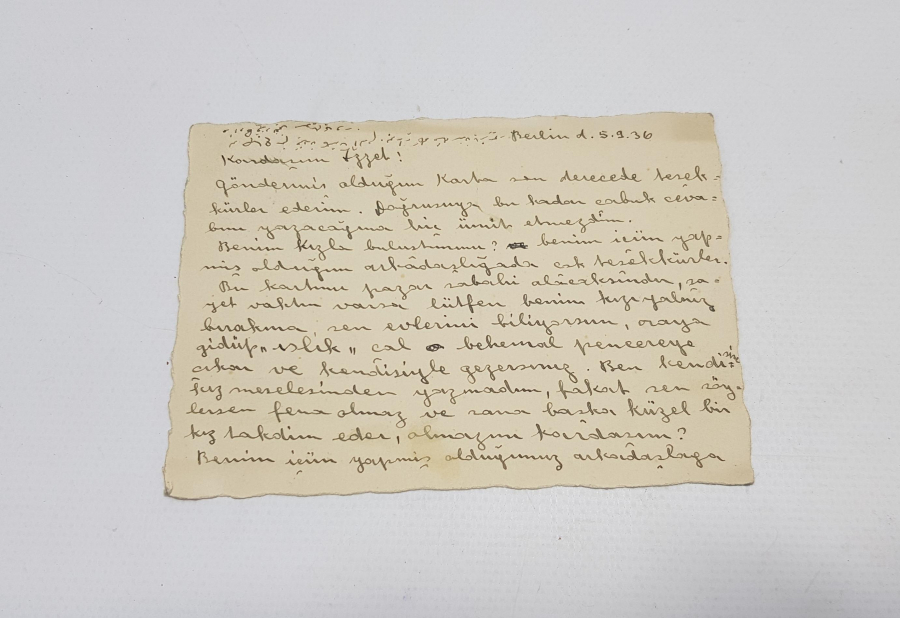 Berlin d. 5.9.36
Kardaşım İzzet!
Göndermiş olduğun Karta son derecede teşek-
kürler ederim. Doğrusuya bu kadar çabuk ceva-
bını yazacağına hiç ümit etmezdim.
Benim kızla buluştunmu? benim içün yap-
mış olduğun arkâdaşlığada çok teşekkürler.
Bu kartımı pazar sabahi alacaksındır, şa-
yet vaktın varsa lütfen benim kızı yalınız
bırakma, sen evlerini biliyorsun, oraya
gidüp „ıslık„ çal behemal pencereye
çıkar ve kendisiyle gezersiniz. Ben kendi=sine
kız meselesinden yazmadım, fakat sen söy-
lersen fena olmaz ve sana başka küzel bir
kız takdim eder, olmazmı kardaşım?
Benim içün yapmış olduğunuz arkâdaşlaga